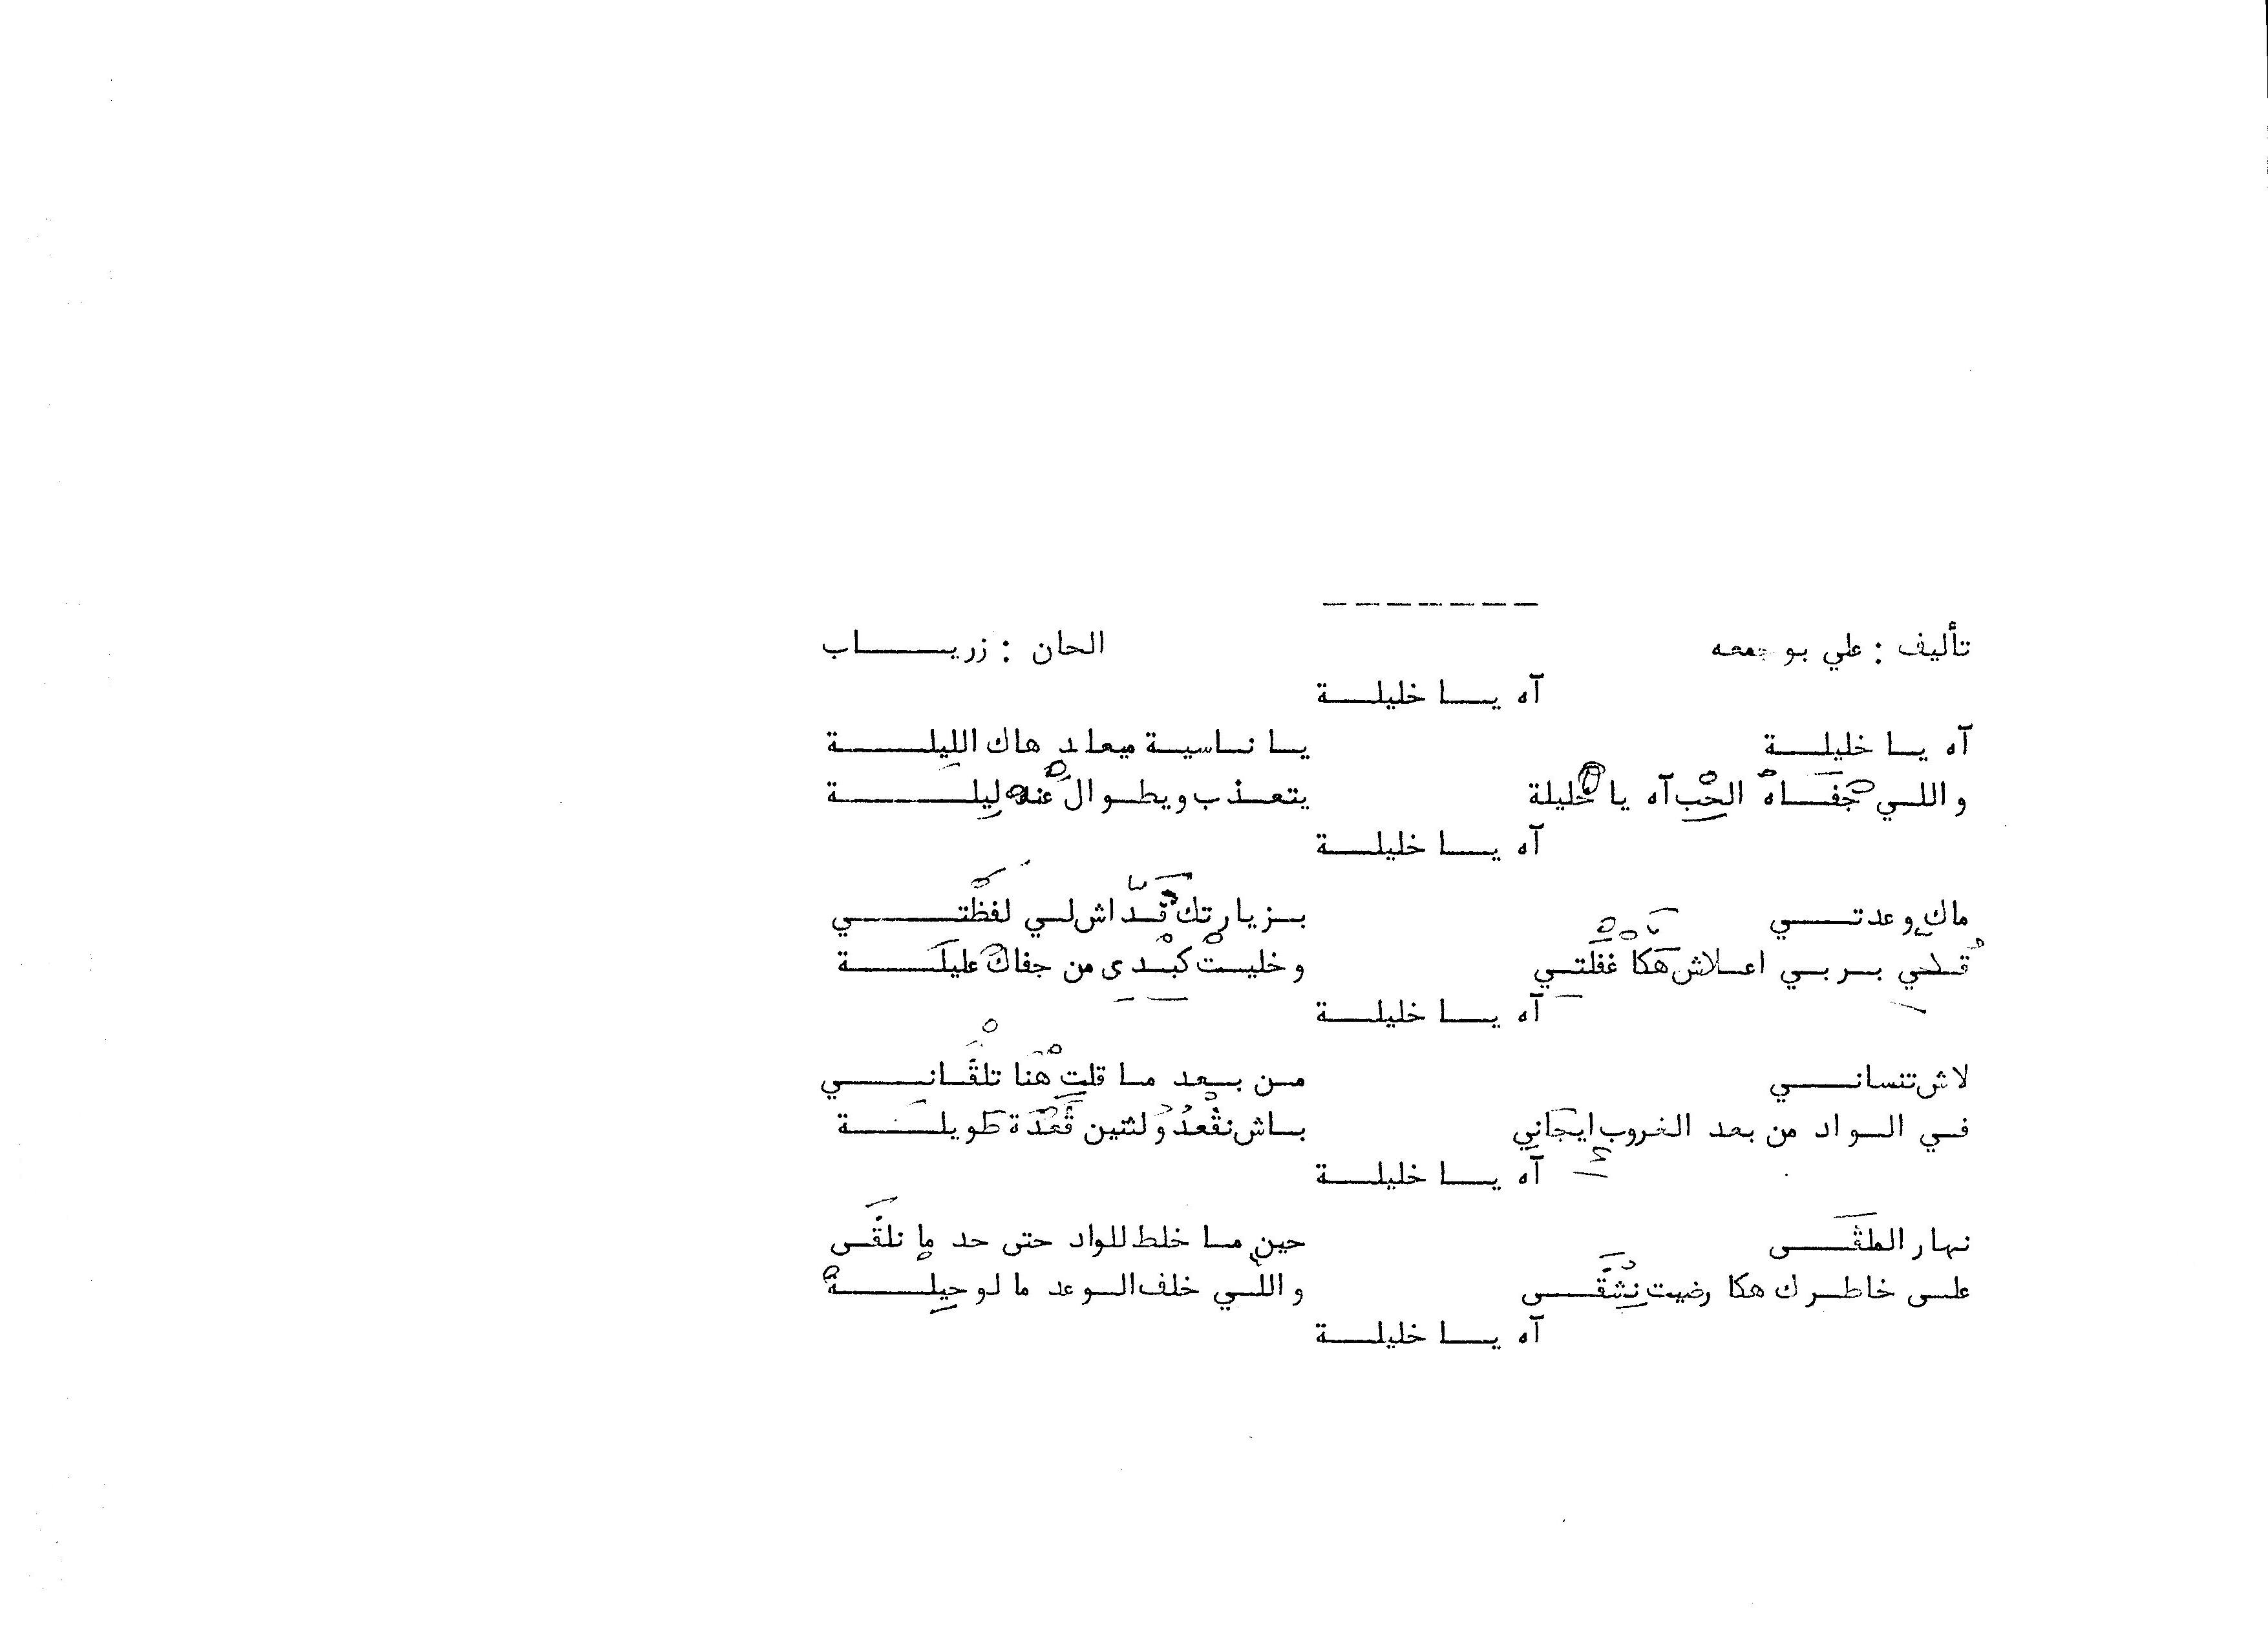 تأليف : علي بو جمعه الحان : زرياب
آه يا خليلة
آه يا خليلة يا ناسية ميعاد هاك الليلة
واللي جفاه الحب آه يا خليلة يتعذب ويطوال عنه ليلة
آه يا خليلة
ماك وعدتي بزيارتك قداش لي لفظتي
بربي اعلاش هكا غفلتي وخليت كبدي من جفاك عليلة
آه يا خليلة
لاش تنساني من بعد ما قلت هنا تلڤاني
في الواد من بعد الغروب ايجاني باش نڤعدو لثنين ڤعدة طويلة
آه يا خليلة
نهار الملڤى حين ما خلط للواد حتى حد ما نلڤى
على خاطرك هكا رضيت نشڤى واللي خلف الوعد ما لو حيلة
آه يا خليلة